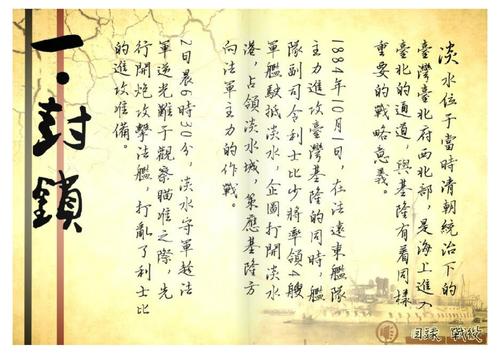 一·封鎖
淡水位于當時清朝統治下的
臺灣臺北府西北部，是海上進入
臺北的通道，與基隆有着同樣
重要的戰略意義。
1884年10月1日，在法遠東艦隊
主力進攻臺灣基隆的同時，艦
隊副司令利士比少將率領4艘
軍艦駛抵淡水，企圖打開淡水
港，占領淡水城，策應基隆方
向法軍主力的作戰。
2日晨6時30分，淡水守軍趁法
軍逆光難于觀察瞄准之際，先
行開炮攻擊法艦，打亂了利士比
的進攻准備。
目錄